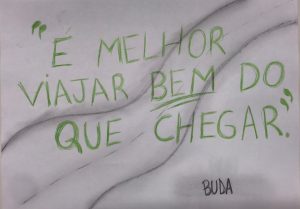 "É MELHOR
VIAJAR BEM DO
QUE CHEGAR."
BUDA